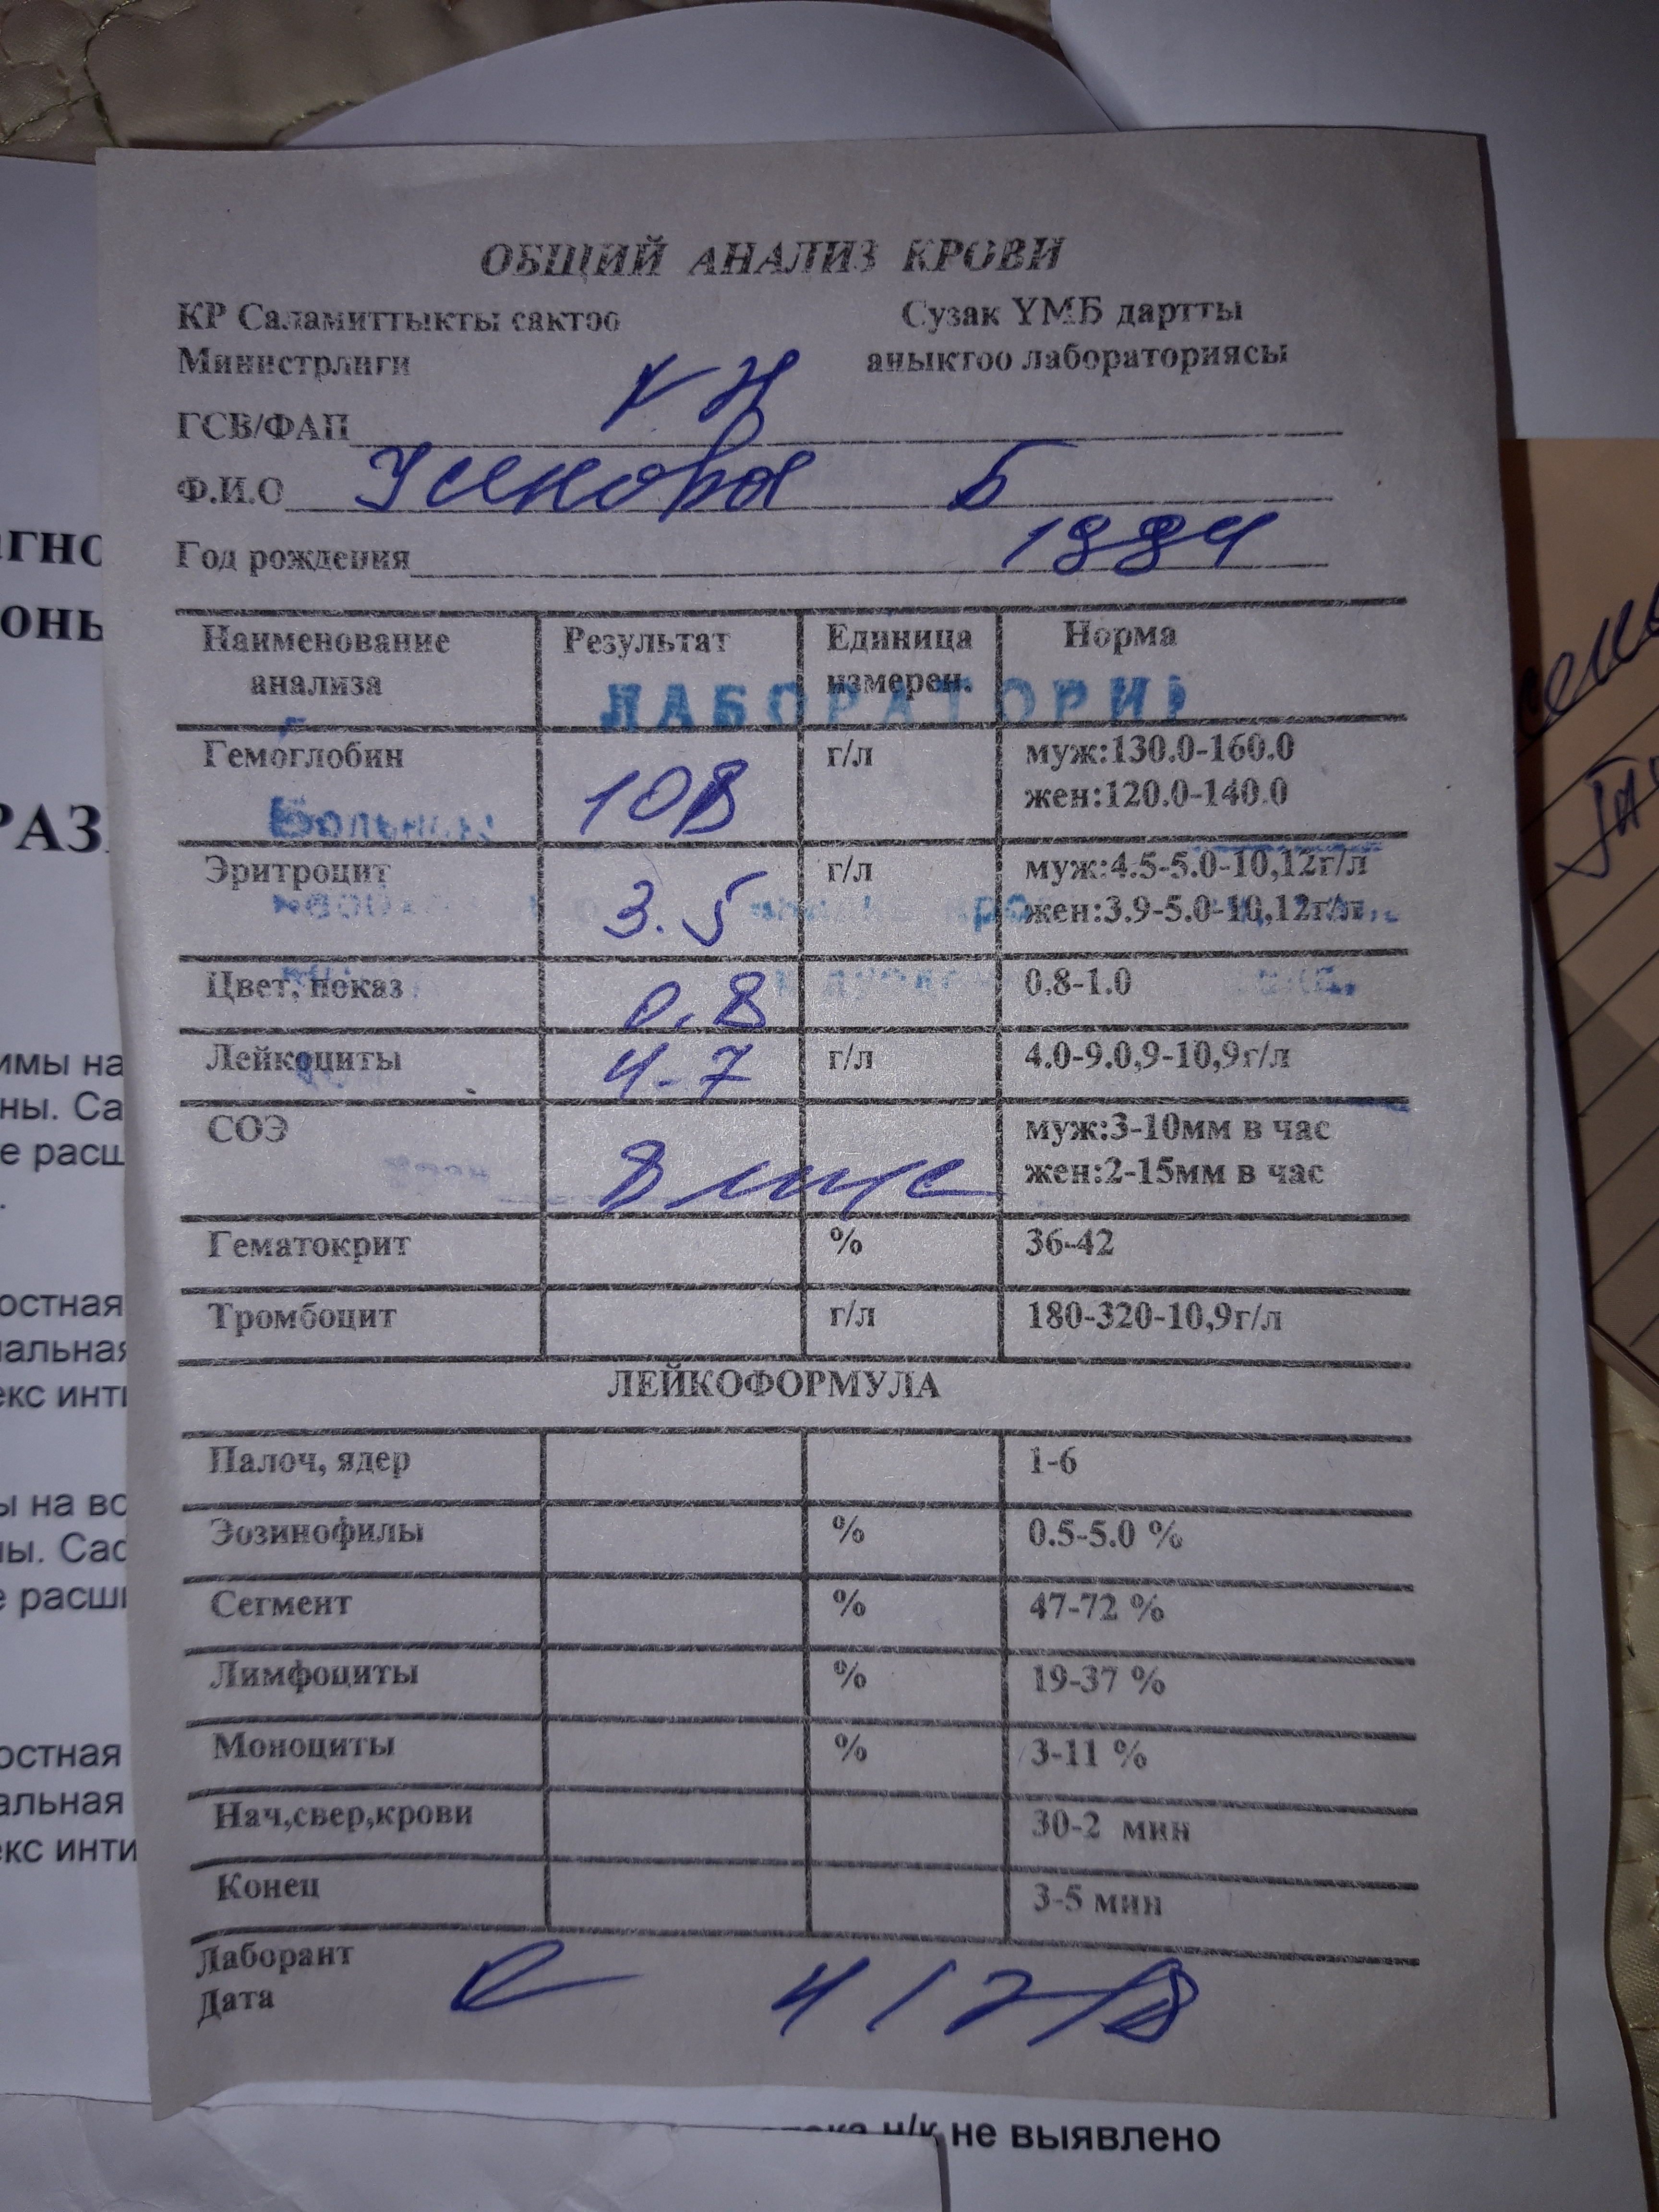 ОБЩИЙ АНАЛИЗ КРОВИ
КР Саламиттыкты сактоо
Министрлиги
Сузак ҮМБ дартты
аныктоо лабораториясы
ГСВ/ФАП
Ф.И.О Усенова Б
Год рождения 1994
Наименование анализа Результат Единица измерен. Норма
ЛАБОРАТОРИ
Гемоглобин 108 г/л муж:130.0-160.0
жен:120.0-140.0
Больниц
Эритроцит 3.5 г/л муж:4.5-5.0-10,12г/л
жен:3.9-5.0-10,12г/л
Цвет, показ 0,8 0.8-1.0
Лейкоциты 4-7 г/л 4.0-9.0,9-10,9г/л
СОЭ 8 мм/с муж:3-10мм в час
жен:2-15мм в час
Гематокрит % 36-42
Тромбоцит г/л 180-320-10,9г/л
ЛЕЙКОФОРМУЛА
Палоч, ядер 1-6
Эозинофилы % 0.5-5.0 %
Сегмент % 47-72 %
Лимфоциты % 19-37 %
Моноциты % 3-11 %
Нач,свер,крови 30-2 мин
Конец 3-5 мин
Лаборант
Дата
агно
РАЗ
имы на
ны. Са
е расш
остная
альная
екс инти
ы на во
ны. Сас
е расши
остная
альная
екс инти
н/к не выявлено